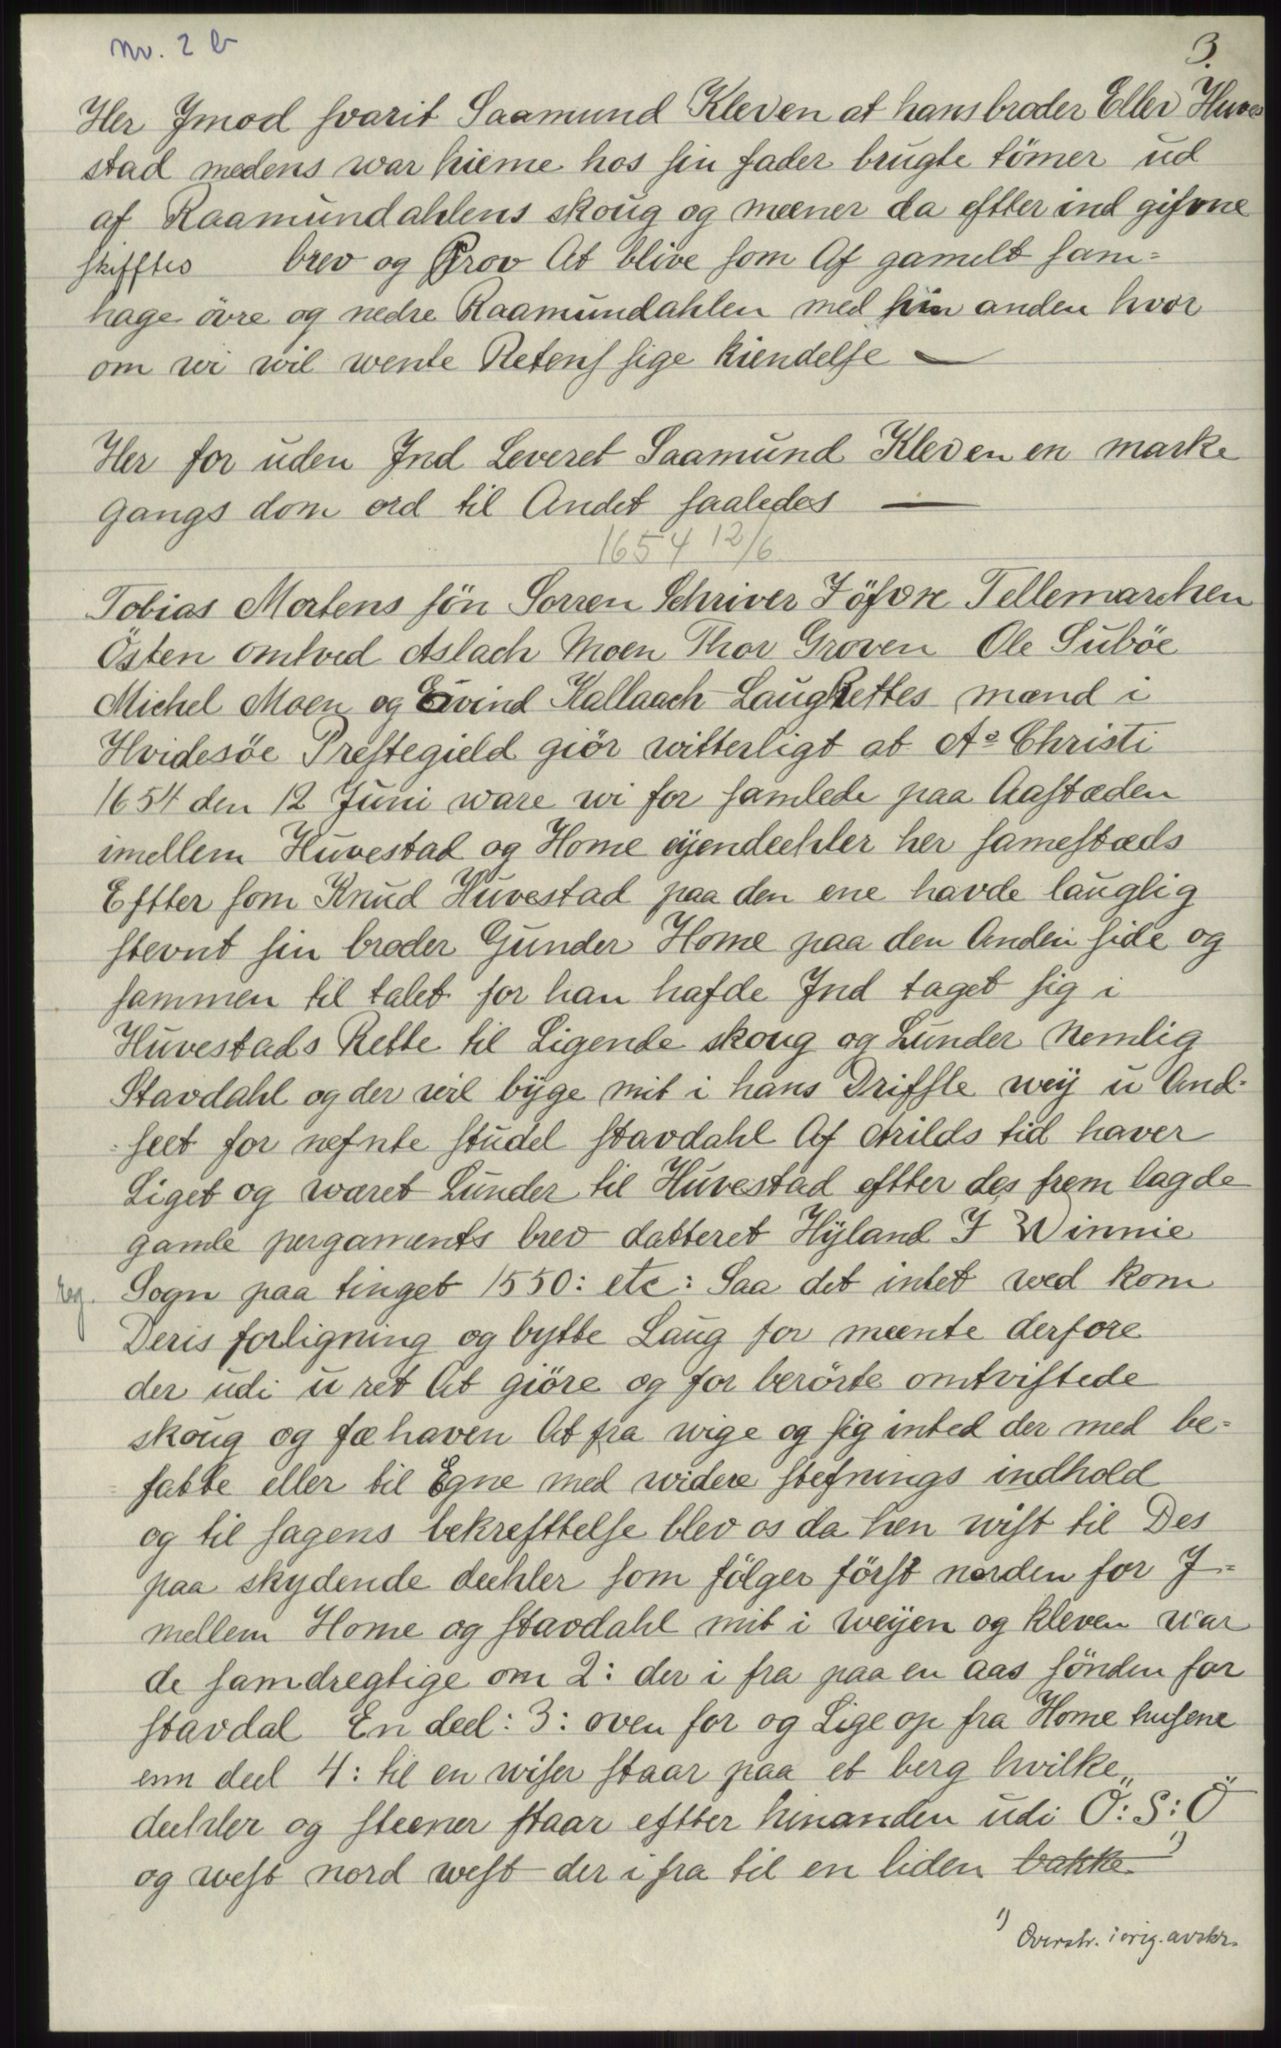 nr. 2 b
3.
Her Jmod svarit Saamund Kleven at hans broder Eller Huve
stad medens war hieme hos sin fader brugte tömer ud
af Raamundahlens skoug og meener da efter ind gifvne
skifftes brev og Prov At blive som Af gamelt sam=
hage övre og nedre Raamundahlen med hin anden hvor
om wi wil wente Retens sige kiendelse —
Her for uden Jnd Leveret Saamund Kleven en marke
gangs dom ord til Andet saaledes —
1654 12/6
Tobias Mortens sön Sorren Schriver J öfvre Tellemarchen
Östen omtved Aslach Moen Thor Groven Ole Suböe
Michel Moen og Eivind Kallaach LaugRettes mænd i
Hvidesöe Prestegield giör witterligt at Aº Christi
1654 den 12 Juni ware wi for samlede paa Aastæden
imellem Huvestad og Home eyendeehler her samestæds
Efter som Knud Huvestad paa den ene havde lauglig
stevnt sin broder Gunder Home paa den Anden side og
sammen til talet for han hafde Jnd taget sig i
Huvestads Rette til Ligende skoug og Lunder Nemlig
Stavdahl og der wil byge mit i hans Driffle weÿ u And-
seet for nefnte studel stavdahl Af Arilds tid haver
Liget og wæret Lunder til Huvestad efter des frem lagde
gamle pergaments brev datteret Hÿland J Winnie
Sogn paa tinget 1550: etc: Saa det intet wed kom
Deris forligning og bytte Laug for meente derfore
der udi u ret At giöre og for berörte omtvistede
skoug og fæhaven At fra wige og sig inted der med be=
fatte eller til Egne med widere stefnings indhold
og til sagens bekrefttelse blev os da hen wist til Des
paa skydende deehler som fölger först norden for J=
mellem Home og stavdahl mit i weyen og kleven war
de samdregtige om 2: der i fra paa en aas sönden for
stavdal En deel: 3: oven for og Lige op fra Home husene
enn deel 4: til en wiser staar paa et berg hvilke
deehler og steener staar efter hinanden udi Ö: S: Ö
og west nord west der i fra til en liden bakke 1)
1) Overstr. i orig. avskr.